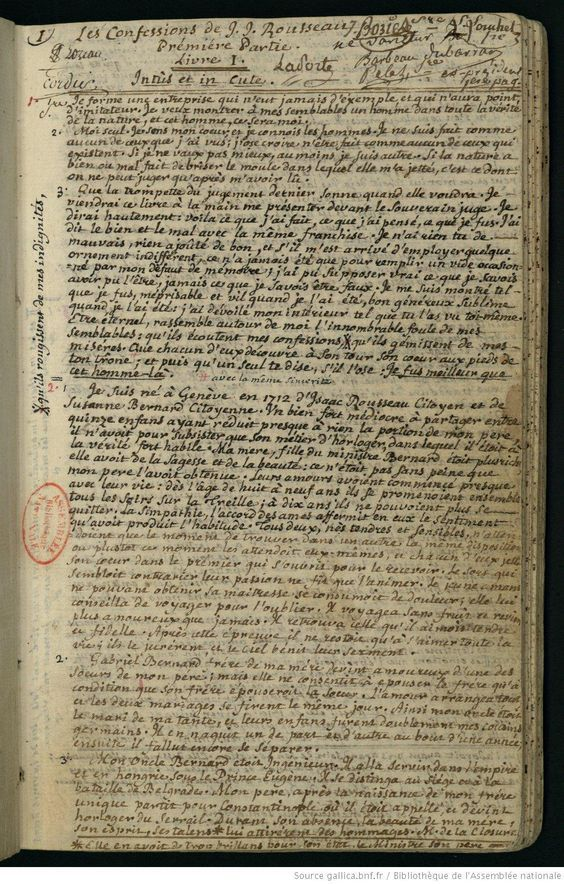 1
Les Confessions de J. J. Rousseau
Première Partie.
Livre 1.
Laporte
Intùs et in Cute.
Je forme une entreprise qui n'eut jamais d'éxemple, et qui n'aura point
d'imitateur. Je veux montrer à mes semblables un homme dans toute la vérité
de la nature, et cet homme, ce sera moi.
2. Moi seul. Je sens mon cœur, et je connois les hommes. Je ne suis fait comme
aucun de ceux que j'ai vus; j'ose croire n'être fait comme aucun de ceux qui
existent. Si je ne vaux pas mieux, au moins je suis autre. Si la nature a
bien ou mal fait de briser le moule dans lequel elle m'a jetté, c'est ce dont
on ne peut juger qu'après m'avoir lu.
3. Que la trompette du jugement dernier sonne quand elle voudra. Je
viendrai ce livre à la main me présenter devant le Souverain juge. Je
dirai hautement: voila ce que j'ai fait, ce que j'ai pensé, ce que je fus. J'ai
dit le bien et le mal avec la même franchise. Je n'ai rien tu de
mauvais, rien ajoûté de bon, et s'il m'est arrivé d'employer quelque
ornement indifférent, ce n'a jamais été que pour remplir un vide ocasion-
né par mon défaut de mémoire; j'ai pu supposer vrai ce que je savois
avoir pu l'être, jamais ce que je savois être faux. Je me suis montré tel
que je fus, méprisable et vil quand je l'ai été, bon, généreux, Sublime
quand je l'ai été: j'ai dévoilé mon intérieur tel que tu l'as vu toi-même.
Etre éternel, rassemble autour de moi l'innombrable foule de mes
semblables: qu'ils écoutent mes confessions, X qu'ils gémissent de mes
miséres. Que chacun d'eux découvre à son tour son cœur aux pieds de
ton trône #; et puis qu'un seul te dise, s'il l'ose: Je fus meilleur que
cet homme-là.
# avec la même sincérité
X qu'ils rougissent de mes indignités,
Je suis né à Genève en 1712 d'Isaac Rousseau Citoyen et de
Susanne Bernard Citoyenne. Un bien fort médiocre à partager entre
quinze enfans ayant réduit presque à rien la portion de mon pere,
il n'avoit pour subsister que son métier d'horloger, dans lequel il étoit à
la vérité fort habile. Ma mere, fille du ministre Bernard étoit plus riche
elle avoit de la sagesse et de la beauté: ce n'étoit pas sans peine que
mon pere l'avoit obtenue. Leurs amours avoient commencé presque
avec leur vie: dès l'age de huit à neuf ans ils se promenoient ensemble
tous les soirs sur la Treille; à dix ans ils ne pouvoient plus se
quitter. La simpathie, l'accord des ames affermit en eux le sentiment
qu'avoit produit l'habitude. Tous deux, nés tendres et sensibles, n'atten
doient que le moment de trouver dans un autre la même disposition
ou plustot ce moment les attendoit eux-mêmes, et chacun d'eux jetta
son cœur dans le premier qui s'ouvrit pour le recevoir. Le sort qui
sembloit contrarier leur passion ne fit que l'animer. Le jeune amant
ne pouvant obtenir sa maitresse se consumoit de douleur; elle lui
conseilla de voyager pour l'oublier. Il voyagea sans fruit et revint
plus amoureux que jamais. Il retrouva celle qu'il aimoit tendre
et fidelle. Après cette épreuve il ne restoit qu'à s'aimer toute la
vie; ils le jurérent, et le Ciel bénit leur serment.
2. Gabriel Bernard frére de ma mére devint amoureux d'une des
sœurs de mon pere; mais elle ne consentit à épouser le frére qu'à
condition que son frére épouseroit la sœur. L'amour arrangea tout
et les deux mariages se firent le même jour. Ainsi mon oncle étoit
le mari de ma tante, et leurs enfans furent doublement mes cousins
germains. Il en naquit un de part et d'autre au bout d'une année
ensuite il fallut encore se séparer.
3. Mon Oncle Bernard étoit Ingénieur: Il alla servir dans l'Empire
et en hongrie sous le Prince Eugène. Il se distingua au Siège et à la
bataille de Belgrade. Mon pere, après la naissance de mon frére
unique partit pour Constantinople où il étoit appellé et devint
horloger du Serrail. Durant son absence, la beauté de ma mere,
son esprit, ses talens * lui attirérent des hommages. M. de la Closure
* Elle en avoit de trop brillans pour son état, le Ministre son pere
Source gallica.bnf.fr / Bibliothèque de l'Assemblée nationale